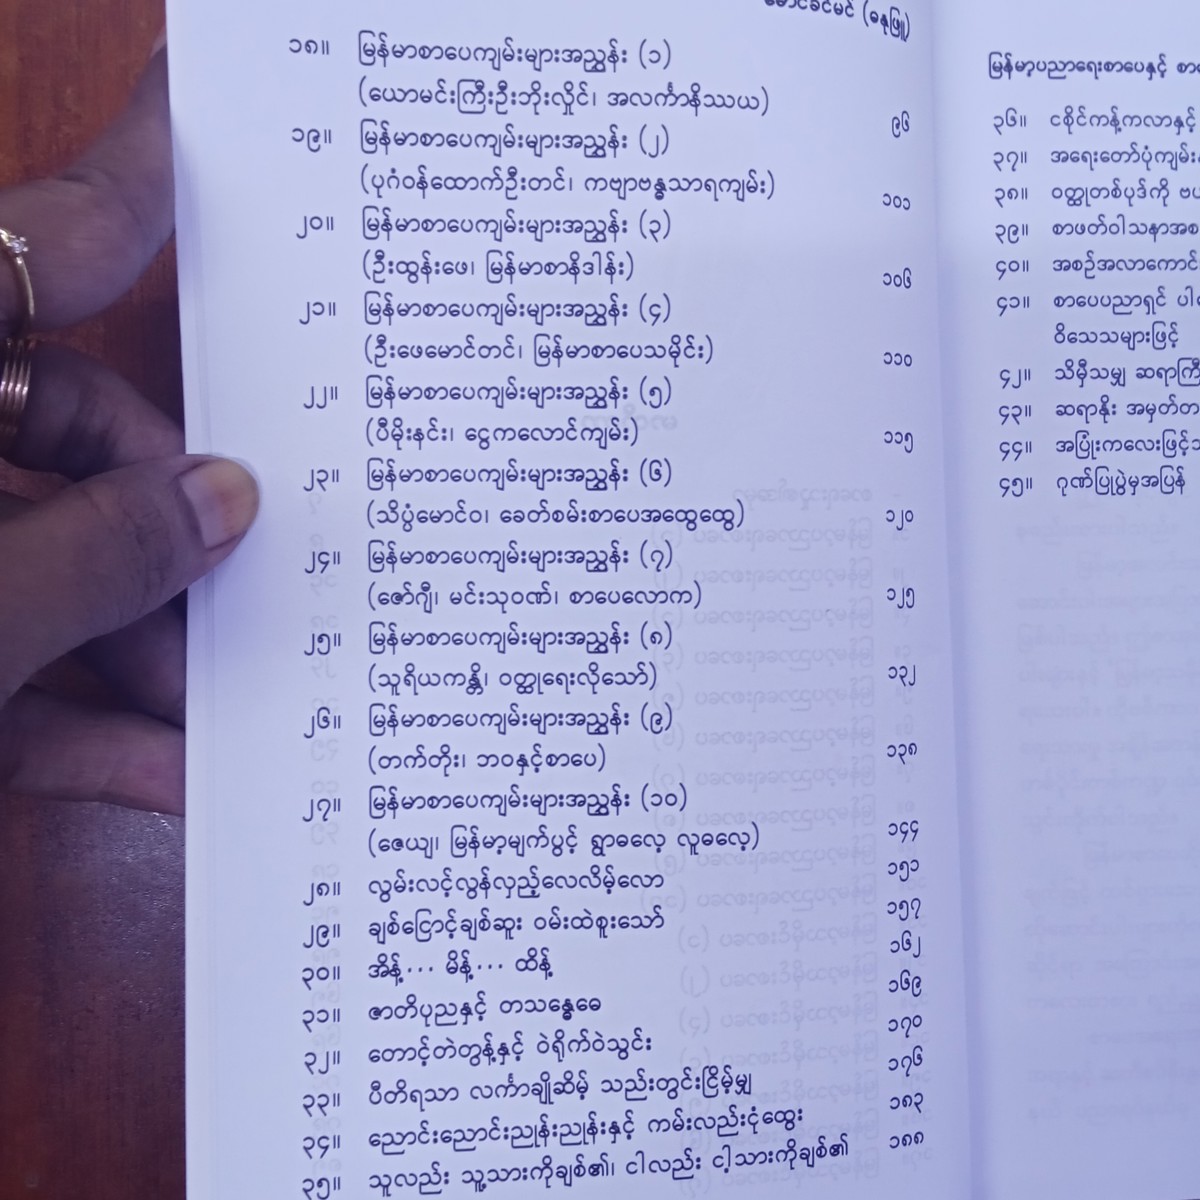 မောင်ခင်မင် (ဓနုဖြူ)
၁၈။ မြန်မာစာပေကျမ်းများအညွှန်း (၁)
(ယောမင်းကြီးဦးဘိုးလှိုင်၊ အလင်္ကာနိဿယ) ၉၆
၁၉။ မြန်မာစာပေကျမ်းများအညွှန်း (၂)
(ပုဂံဝန်ထောက်ဦးတင်၊ ကဗျာဗန္ဓသာရကျမ်း) ၁၀၁
၂၀။ မြန်မာစာပေကျမ်းများအညွှန်း (၃)
(ဦးထွန်းဖေ၊ မြန်မာစာနိဒါန်း) ၁၀၆
၂၁။ မြန်မာစာပေကျမ်းများအညွှန်း (၄)
(ဦးဖေမောင်တင်၊ မြန်မာစာပေသမိုင်း) ၁၁၀
၂၂။ မြန်မာစာပေကျမ်းများအညွှန်း (၅)
(ပီမိုးနင်း၊ ငွေကလောင်ကျမ်း) ၁၁၅
၂၃။ မြန်မာစာပေကျမ်းများအညွှန်း (၆)
(သိပ္ပံမောင်ဝ၊ ခေတ်စမ်းစာပေအထွေထွေ) ၁၂၀
၂၄။ မြန်မာစာပေကျမ်းများအညွှန်း (၇)
(ဇော်ဂျီ၊ မင်းသုဝဏ်၊ စာပေလောက) ၁၂၅
၂၅။ မြန်မာစာပေကျမ်းများအညွှန်း (၈)
(သူရိယကန္တိ၊ ဝတ္ထုရေးလိုသော်) ၁၃၂
၂၆။ မြန်မာစာပေကျမ်းများအညွှန်း (၉)
(တက်တိုး၊ ဘဝနှင့်စာပေ) ၁၃၈
၂၇။ မြန်မာစာပေကျမ်းများအညွှန်း (၁၀)
(ဇေယျ၊ မြန်မာ့မျက်ပွင့် ရွာဓလေ့ လူဓလေ့) ၁၄၄
၂၈။ လွမ်းလင့်လွန်လှည့်လေလိမ့်လော ၁၅၁
၂၉။ ချစ်ငြောင့်ချစ်ဆူး ဝမ်းထဲစူးသော် ၁၅၇
၃၀။ အိန့်... မိန့်... ထိန့် ၁၆၂
၃၁။ ဇာတိပုညနှင့် တသန္ဓေဓေ ၁၆၉
၃၂။ တောင့်တဲတွန့်နှင့် ဝဲရိုက်ဝဲသွင်း ၁၇၀
၃၃။ ပီတိရသာ လင်္ကာချိုဆိမ့် သည်းတွင်းငြိမ့်မျှ ၁၇၆
၃၄။ ညောင်းညောင်းညုန်းညုန်းနှင့် ကမ်းလည်းငုံထွေး ၁၈၃
၃၅။ သူလည်း သူ့သားကိုချစ်၏၊ ငါလည်း ငါ့သားကိုချစ်၏ ၁၈၈
မြန်မာ့ပညာရေးစာပေနှင့်
၃၆။ ငစိုင်ကန့်ကလာနှင့်
၃၇။ အရေးတော်ပုံကျမ်း
၃၈။ ဝတ္ထုတစ်ပုဒ်ကို
၃၉။ စာဖတ်ဝါသနာ
၄၀။ အစဉ်အလာကောင်
၄၁။ စာပေပညာရှင်
ဝိသေသများဖြင့်
၄၂။ သိမှီသမျှ
၄၃။ ဆရာနိုး အမှတ်တ
၄၄။ အပြုံးကလေးဖြင့်
၄၅။ ဂုဏ်ပြုပွဲမှအပြန်